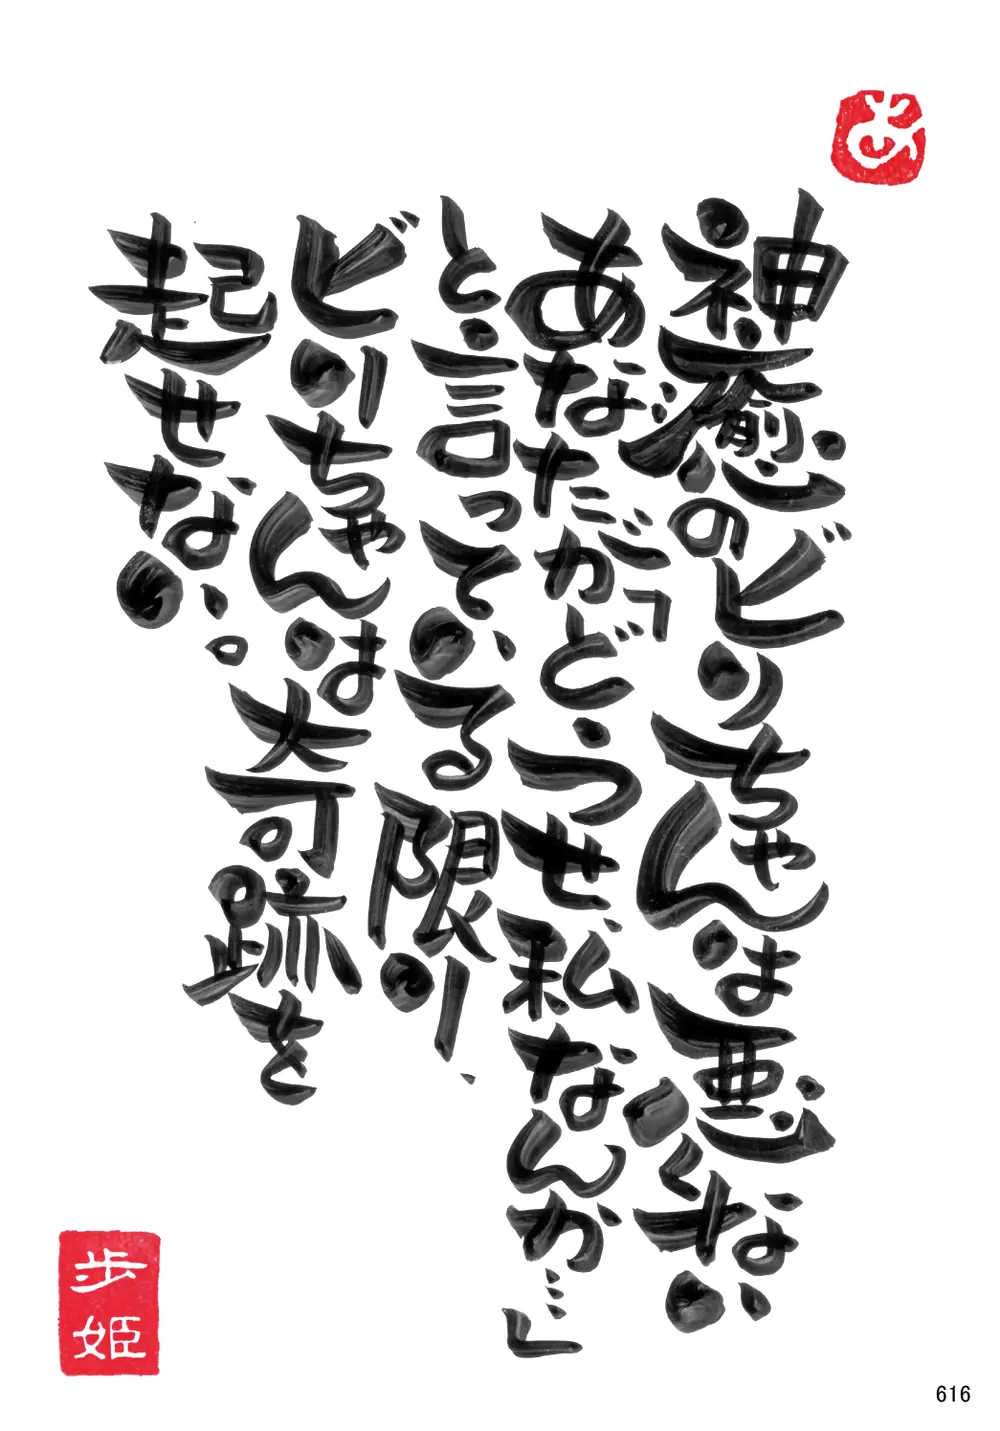 あ
神癒のビリちゃんは悪くない
あなたが「どうせ、私なんか…」
と言っている限り、
ビリちゃんは奇跡を
起せない。
歩姫
616